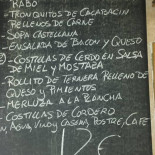 RABO
- TRONQUITOS DE CALABACIN
RELLENOS DE CARNE
- SOPA CASTELLANA
- ENSALADA DE BACON Y QUESO
2) - COSTILLAS DE CERDO EN SALSA
DE MIEL Y MOSTAZA
- ROLLITO DE TERNERA RELLENO DE
QUESO Y PIMIENTOS
- MERLUZA A LA PLANCHA
- COSTILLAS DE CORDERO
AGUA, VINO Y CASERA, POSTRE, CAFE